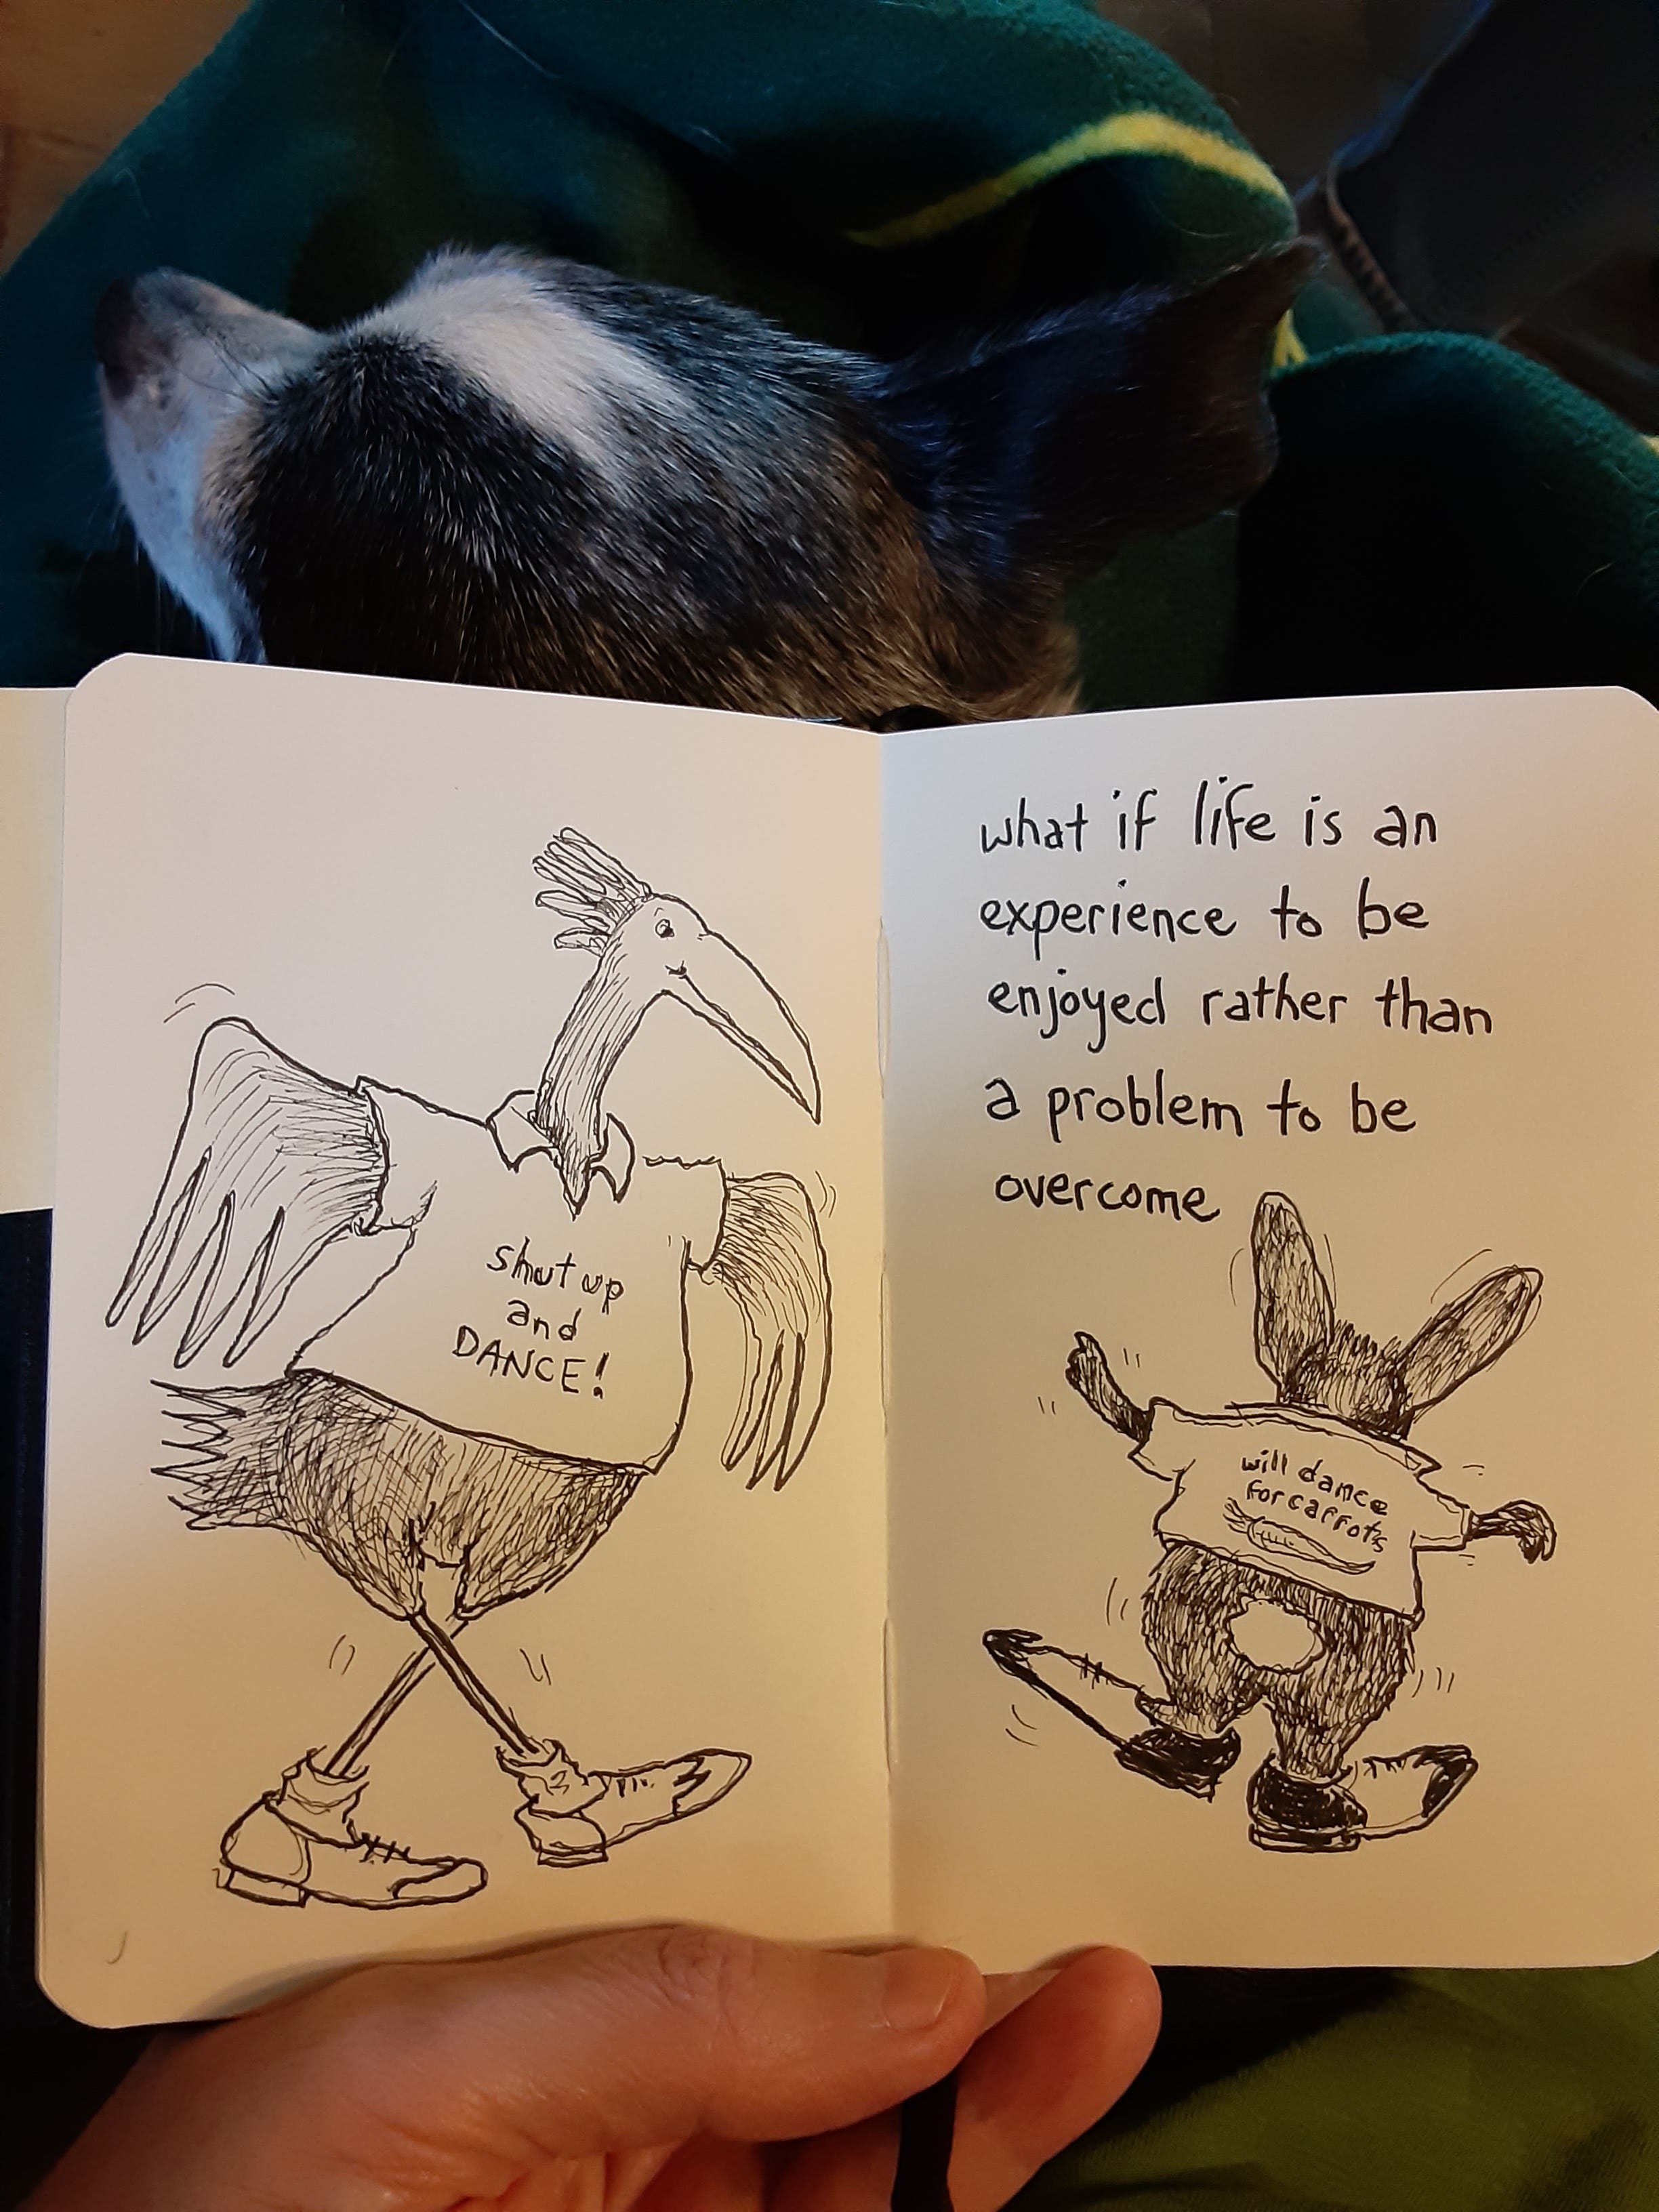 shut up
and
DANCE!
what if life is an
experience to be
enjoyed rather than
a problem to be
overcome
will dance
for carrots